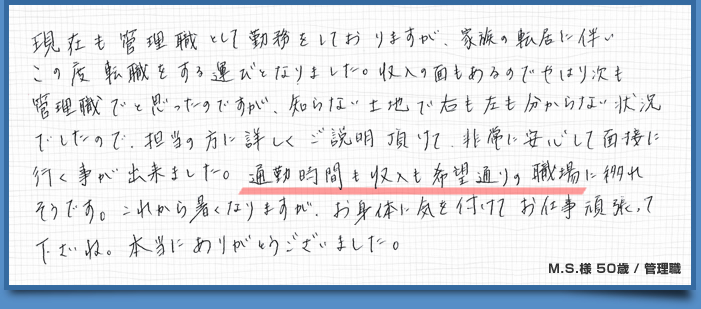 現在も管理職として勤務をしておりますが、家族の転居に伴い
この度転職をする運びとなりました。収入の面もあるのでやはり次も
管理職でと思ったのですが、知らない土地で右も左も分からない状況
でしたので、担当の方に詳しくご説明頂けて、非常に安心して面接に
行く事が出来ました。通勤時間も収入も希望通りの職場に移れ
そうです。これから暑くなりますが、お身体に気を付けてお仕事頑張って
下さいね。本当にありがとうございました。
M.S.様 50歳 / 管理職